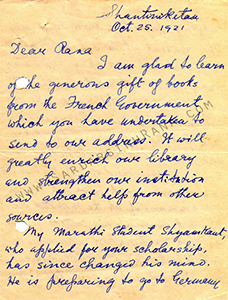 Shantiniketan
Oct. 25. 1921
Dear Rana
I am glad to learn
of the generous gift of books
from the French Government,
which you have undertaken to
send to our address. It will
greatly enrich our library
and strengthen our institution
and attract help from other
sources.
My Marathi Student Shyamkant,
who applied for your scholarship,
has since changed his mind.
He is preparing to go to Germany